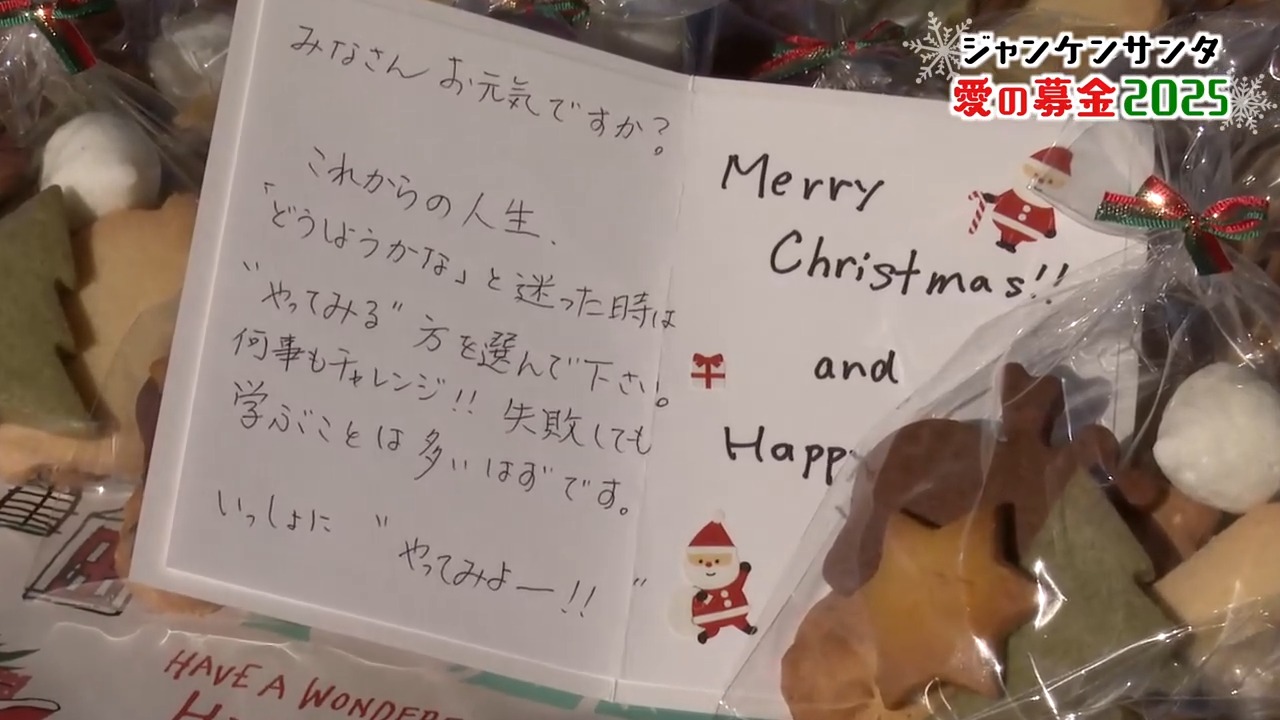 ジャンケンサンタ
愛の募金2025
みなさん お元気ですか?
これからの人生、
「どうしようかな」と迷った時は
"やってみる" 方を選んで下さい。
何事もチャレンジ!! 失敗しても
学ぶことは多いはずです。
いっしょに "やってみよー!!"
Merry
Christmas!!
and
HAVE A